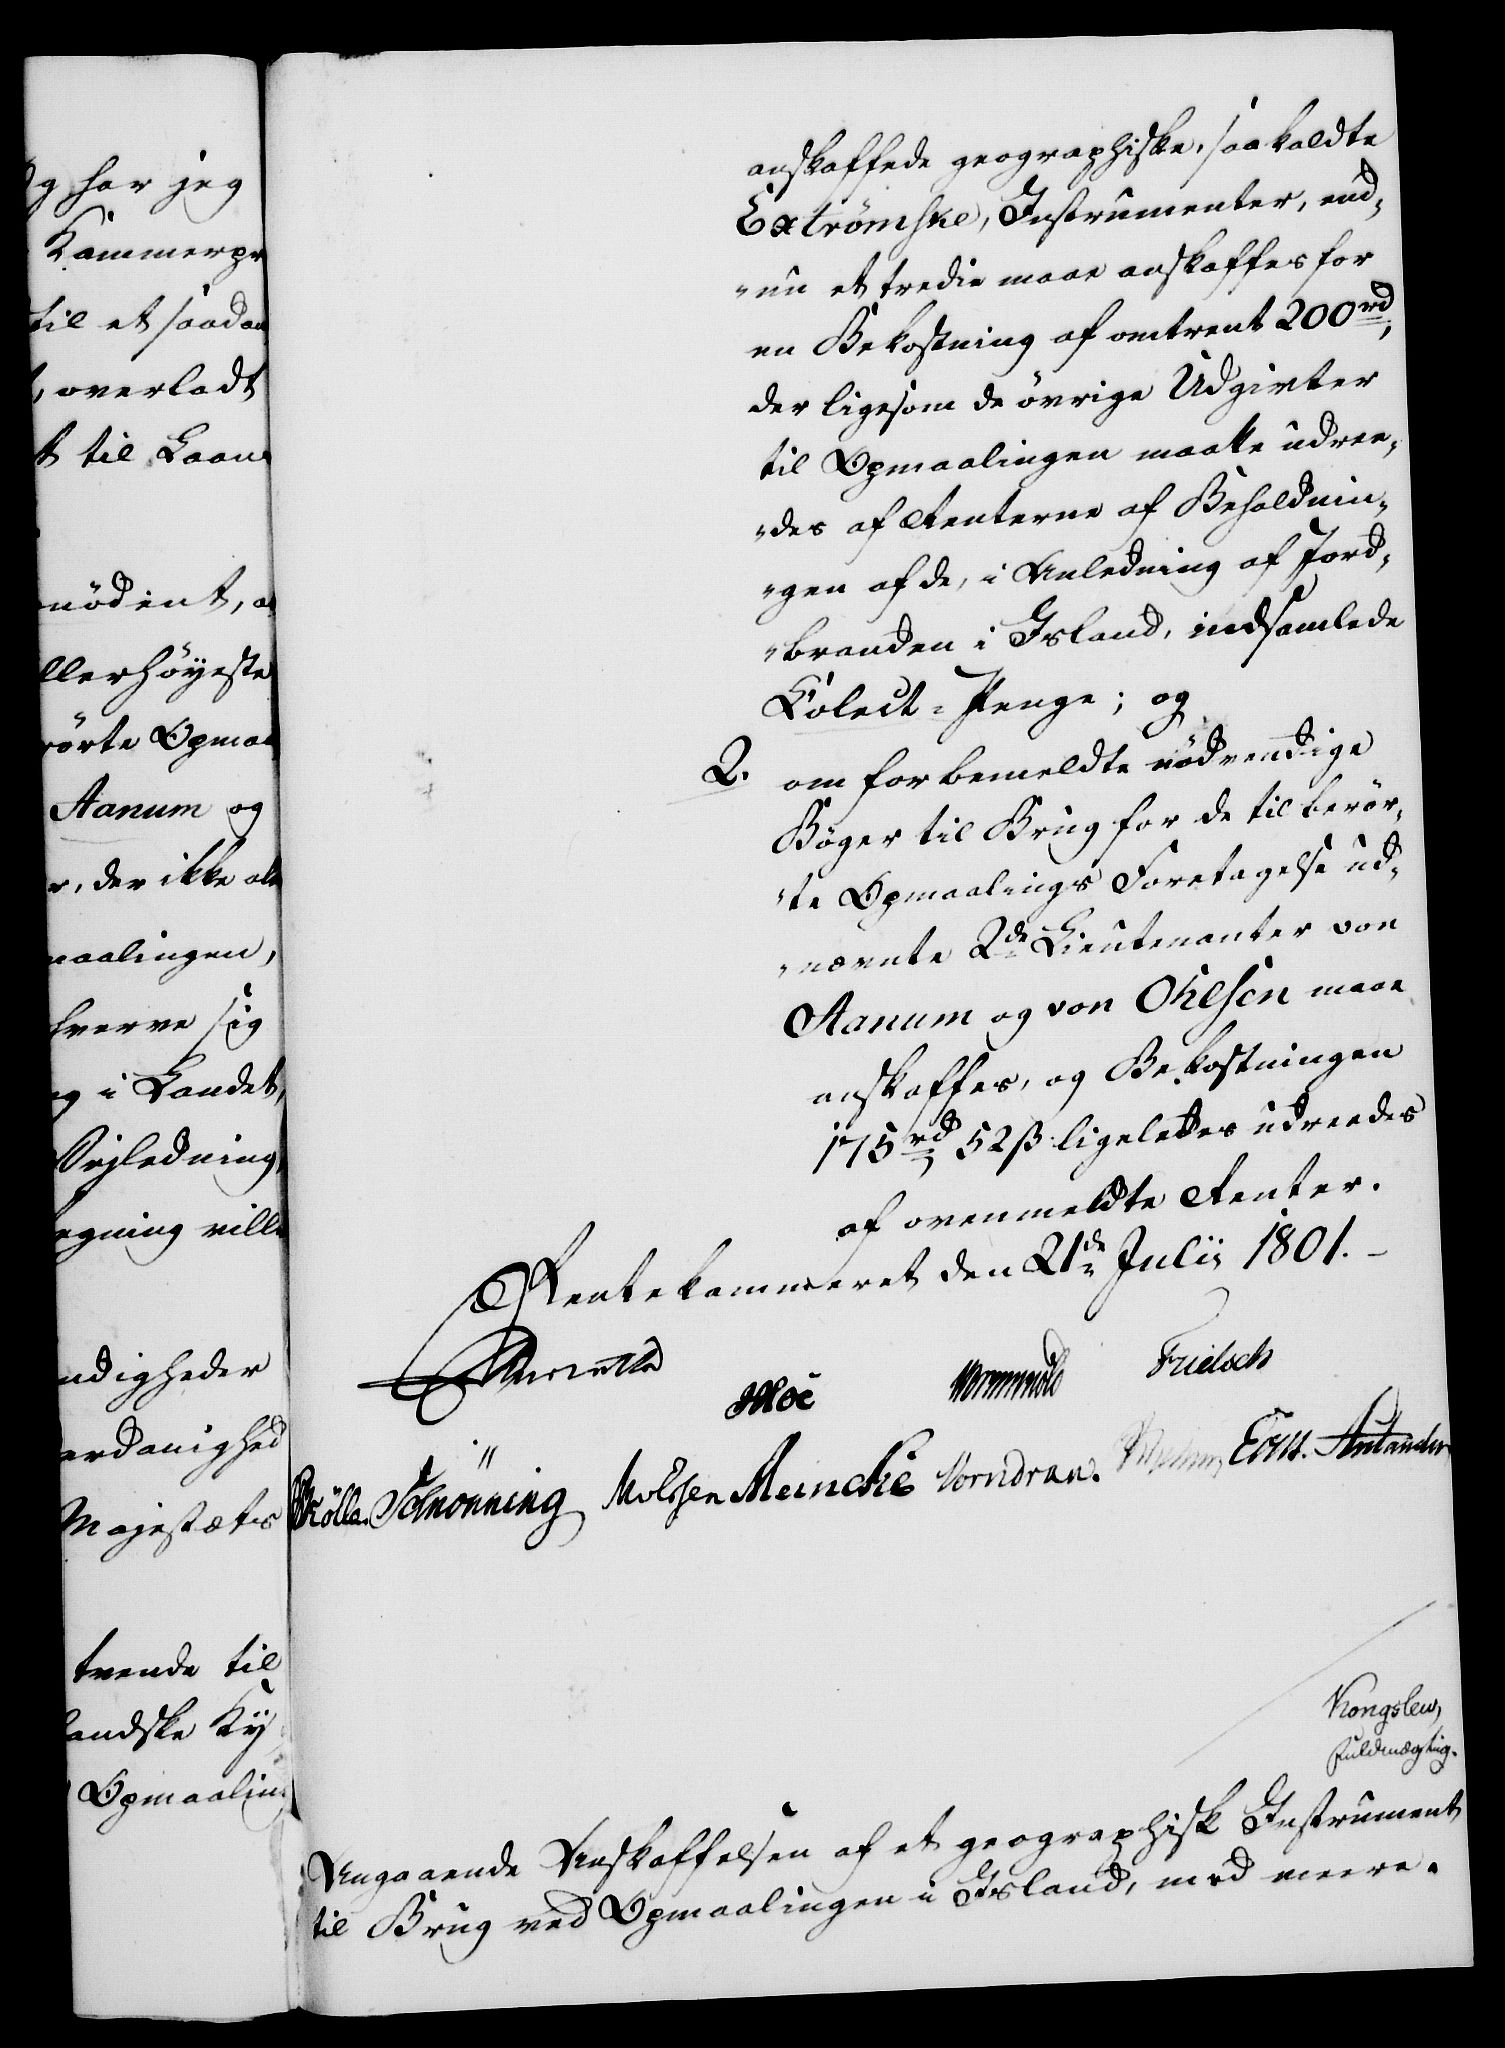 g har jeg
Kammerpr
til et saadan
overladt
t til Laans
nödent, a
llerhöyeste
rörte Opmaa
Aanum og
r, der ikke al
maalingen,
hverve sig
g i Landet,
Veyledning
egning ville
ndigheder
erdanighed
Majestæts
tvende til
landske Ky
Opmaalin
anskaffede geographiske, saakaldte
Extrömske, Instrumenter, end-
-nu et tredie maae anskaffes for
en Bekostning af omtrent 200 rd,
der ligesom de övrige Udgivter
til Opmaalingen maatte udree-
-des af Renterne af Beholdnin-
-gen af de, i Anledning af Jord-
-branden i Island, indsamlede
Colect-Penge; og
2. om forbemeldte nödvendige
Böger til Brug for de til berör-
-te Opmaalings Foretagelse ud-
-nævnte 2de Lieutenanter von
Aanum og von Ohlsen maae
anskaffes, og Bekostningen
175 rd 52 ß ligeledes udreedes
af ovenmeldte Renter.
Rentekammeret den 21de Julii 1801.
Moe Wormskiold Frieboch
Schönning Meincke Vorndran.
Kongslew,
Fuldmægtig.
Angaaende Anskaffelsen af et geographisk Instrument
til Brug ved Opmaalingen i Island, med meere.